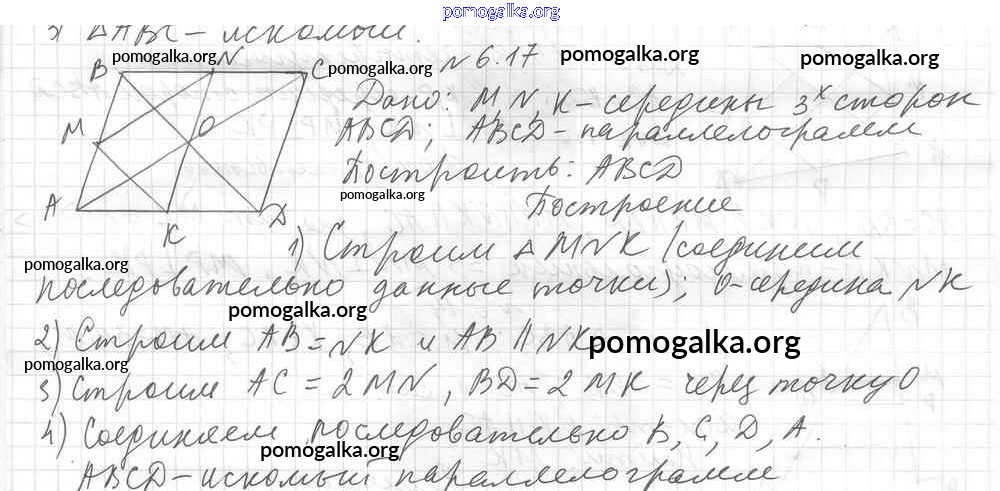 pomogalka.org
3) △ABC – искомый.
pomogalka.org
B N C pomogalka.org № 6.17 pomogalka.org pomogalka.org
Дано: M, N, K – середины 3х сторон
M O ABCD; ABCD – параллелограмм
Построить: ABCD
pomogalka.org
A K D Построение
1) Строим △ MNK (соединим
pomogalka.org
последовательно данные точки); O – середина NK
pomogalka.org
2) Строим AB = NK и AB ∥ NK pomogalka.org
pomogalka.org
3) Строим AC = 2MN, BD = 2MK – через точку O
4) Соединяем последовательно B, C, D, A.
pomogalka.org
ABCD – искомый параллелограмм